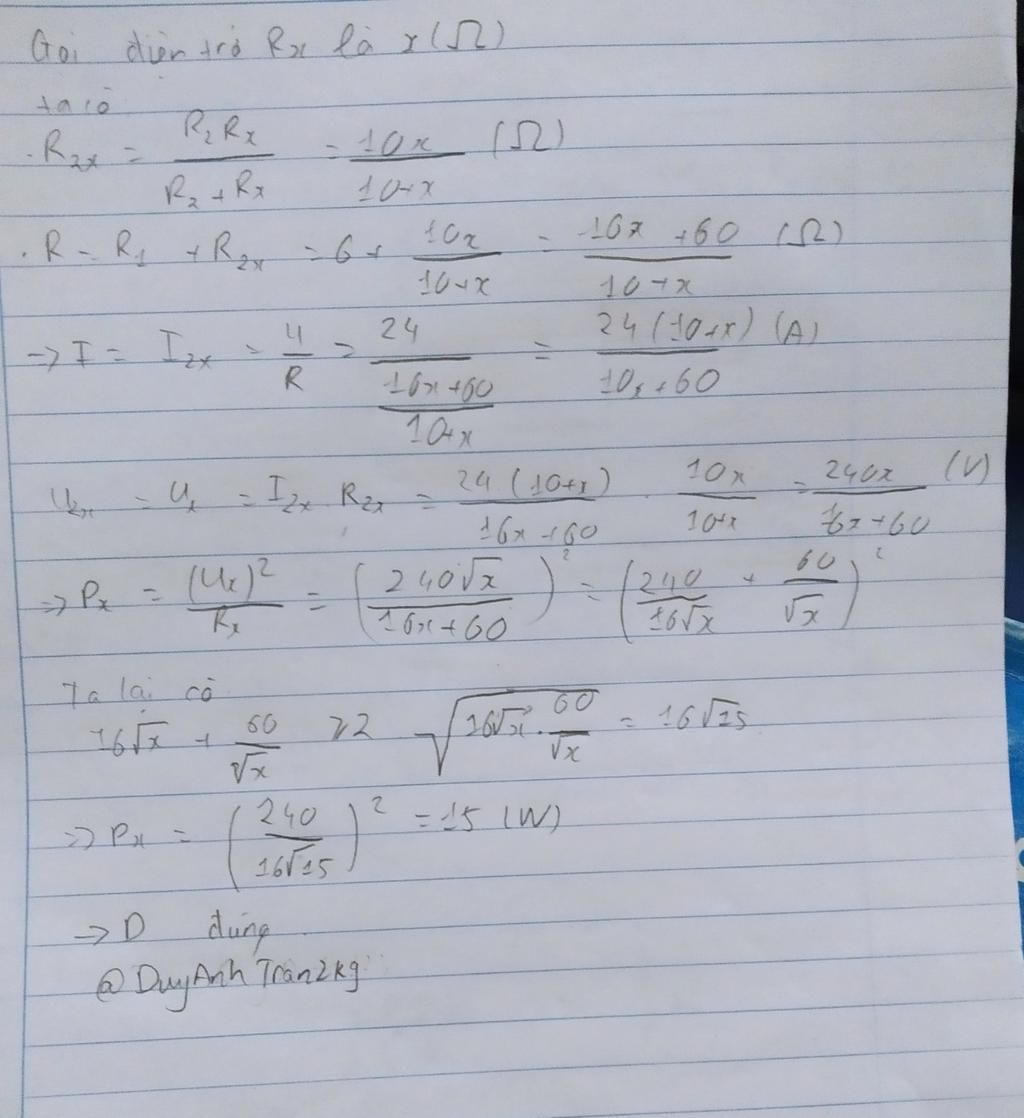 Gọi điện trở Rx là x(Ω)
ta có
. R2x = R2 Rx / R2 + Rx = 10x / 10+x (Ω)
. R = R1 + R2x = 6 + 10x / 10+x = 16x + 60 / 10+x (Ω)
-> I = I2x = U / R = 24 / (16x+60 / 10+x) = 24 (10+x) / 10x + 60 (A)
U2x = Ux = I2x . R2x = 24 (10+x) / 16x + 60 . 10x / 10+x = 240x / 16x + 60 (V)
=> Px = (Ux)² / Rx = (240√x / 16x + 60)² = (240 / 16√x + 60 / √x)²
Ta lại có
16√x + 60 / √x ≥ 2 √(16√x . 60 / √x) = 16√15
=> Px = (240 / 16√15)² = 15 (W)
-> D đúng
@DuyAnhTran2kg